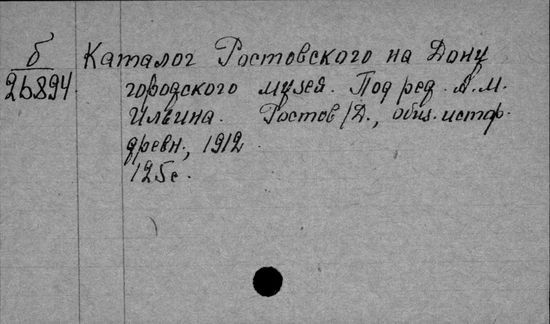 б Каталог Ростовского на Дону
26894 городского музея. Под ред. А.М.
Ильина. Ростов/Д., общ. истор.
древн., 1912.
125с.